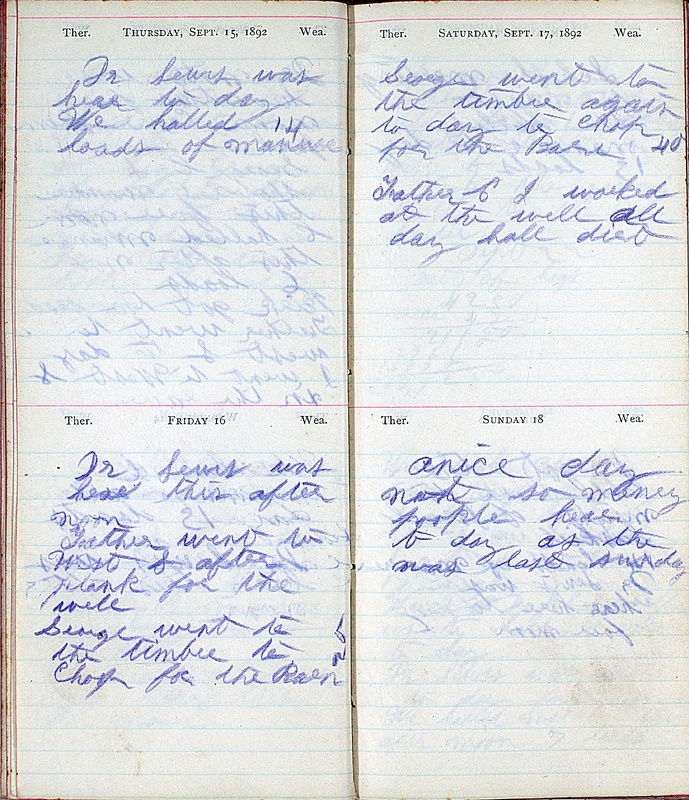 Ther. THURSDAY, SEPT. 15, 1892 Wea.
Dr Lewis was
hear to day
We halled 14
loads of manure
Ther. FRIDAY 16 Wea.
Dr Lewis was
hear this after
noon
Father went to
West & after
plank for the
well
George went to
the timbre to
Chop for the Raen
Ther. SATURDAY, SEPT. 17, 1892 Wea.
George went to
the timbre again
to day to Chop
for the Raen 40
Father & I worked
at the well all
day hall diet
Ther. SUNDAY 18 Wea.
anice day
not so maney
poople hear
to day as the
was last sunday